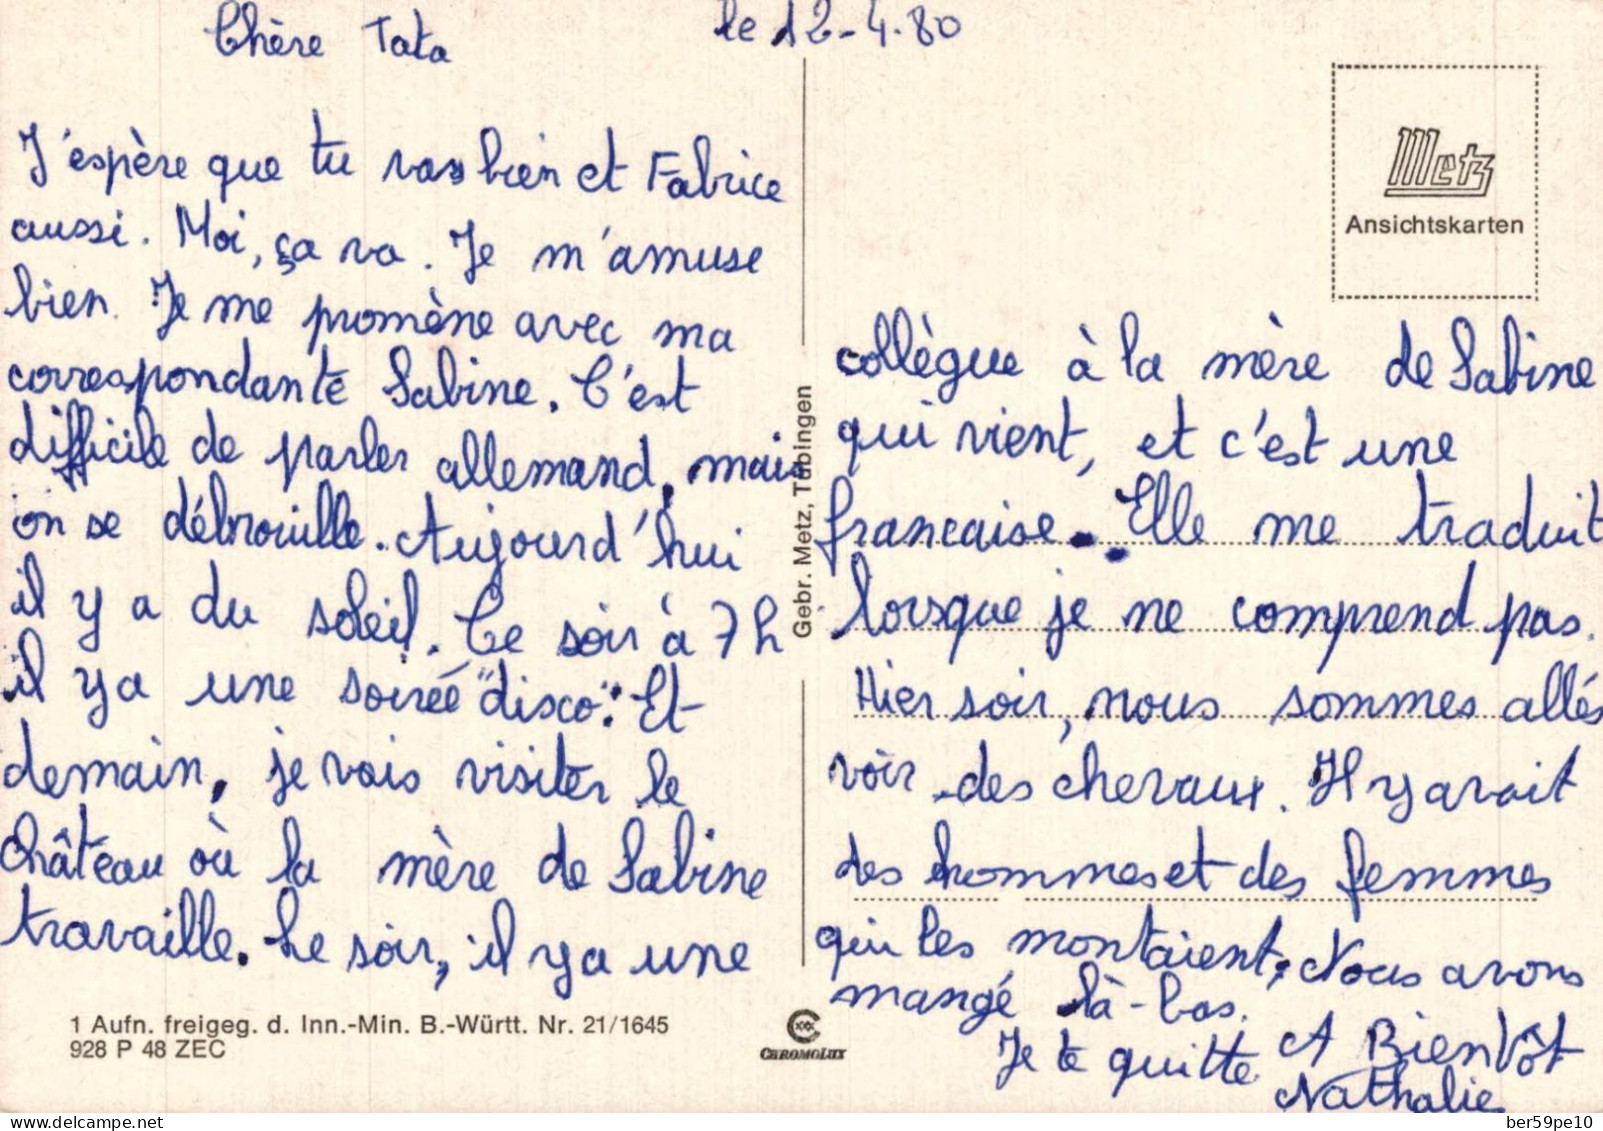 le 12-4-80
Chère Tata
J'espère que tu vas bien et Fabrice
aussi. Moi, ça va. Je m'amuse
bien. Je me promène avec ma
correspondante Sabine. C'est
difficile de parler allemand, mais
on se débrouille. Aujourd'hui
il y a du soleil. Ce soir à 7h
il y a une soirée "disco". Et
demain, je vais visiter le
château où la mère de Sabine
travaille. Le soir, il y a une
1 Aufn. freigeg. d. Inn.-Min. B.-Württ. Nr. 21/1645
928 P 48 ZEC
Gebr. Metz, Tübingen
CHROMOLUX
Metz
Ansichtskarten
collègue à la mère de Sabine
qui vient, et c'est une
francaise. Elle me traduit
lorsque je ne comprend pas.
Hier soir, nous sommes allés
voir des chevaux. Il y avait
des hommes et des femmes
qui les montaient. Nous avons
mangé là-bas.
Je te quitte A Bientôt
Nathalie
delcampe.net
ber59pe10